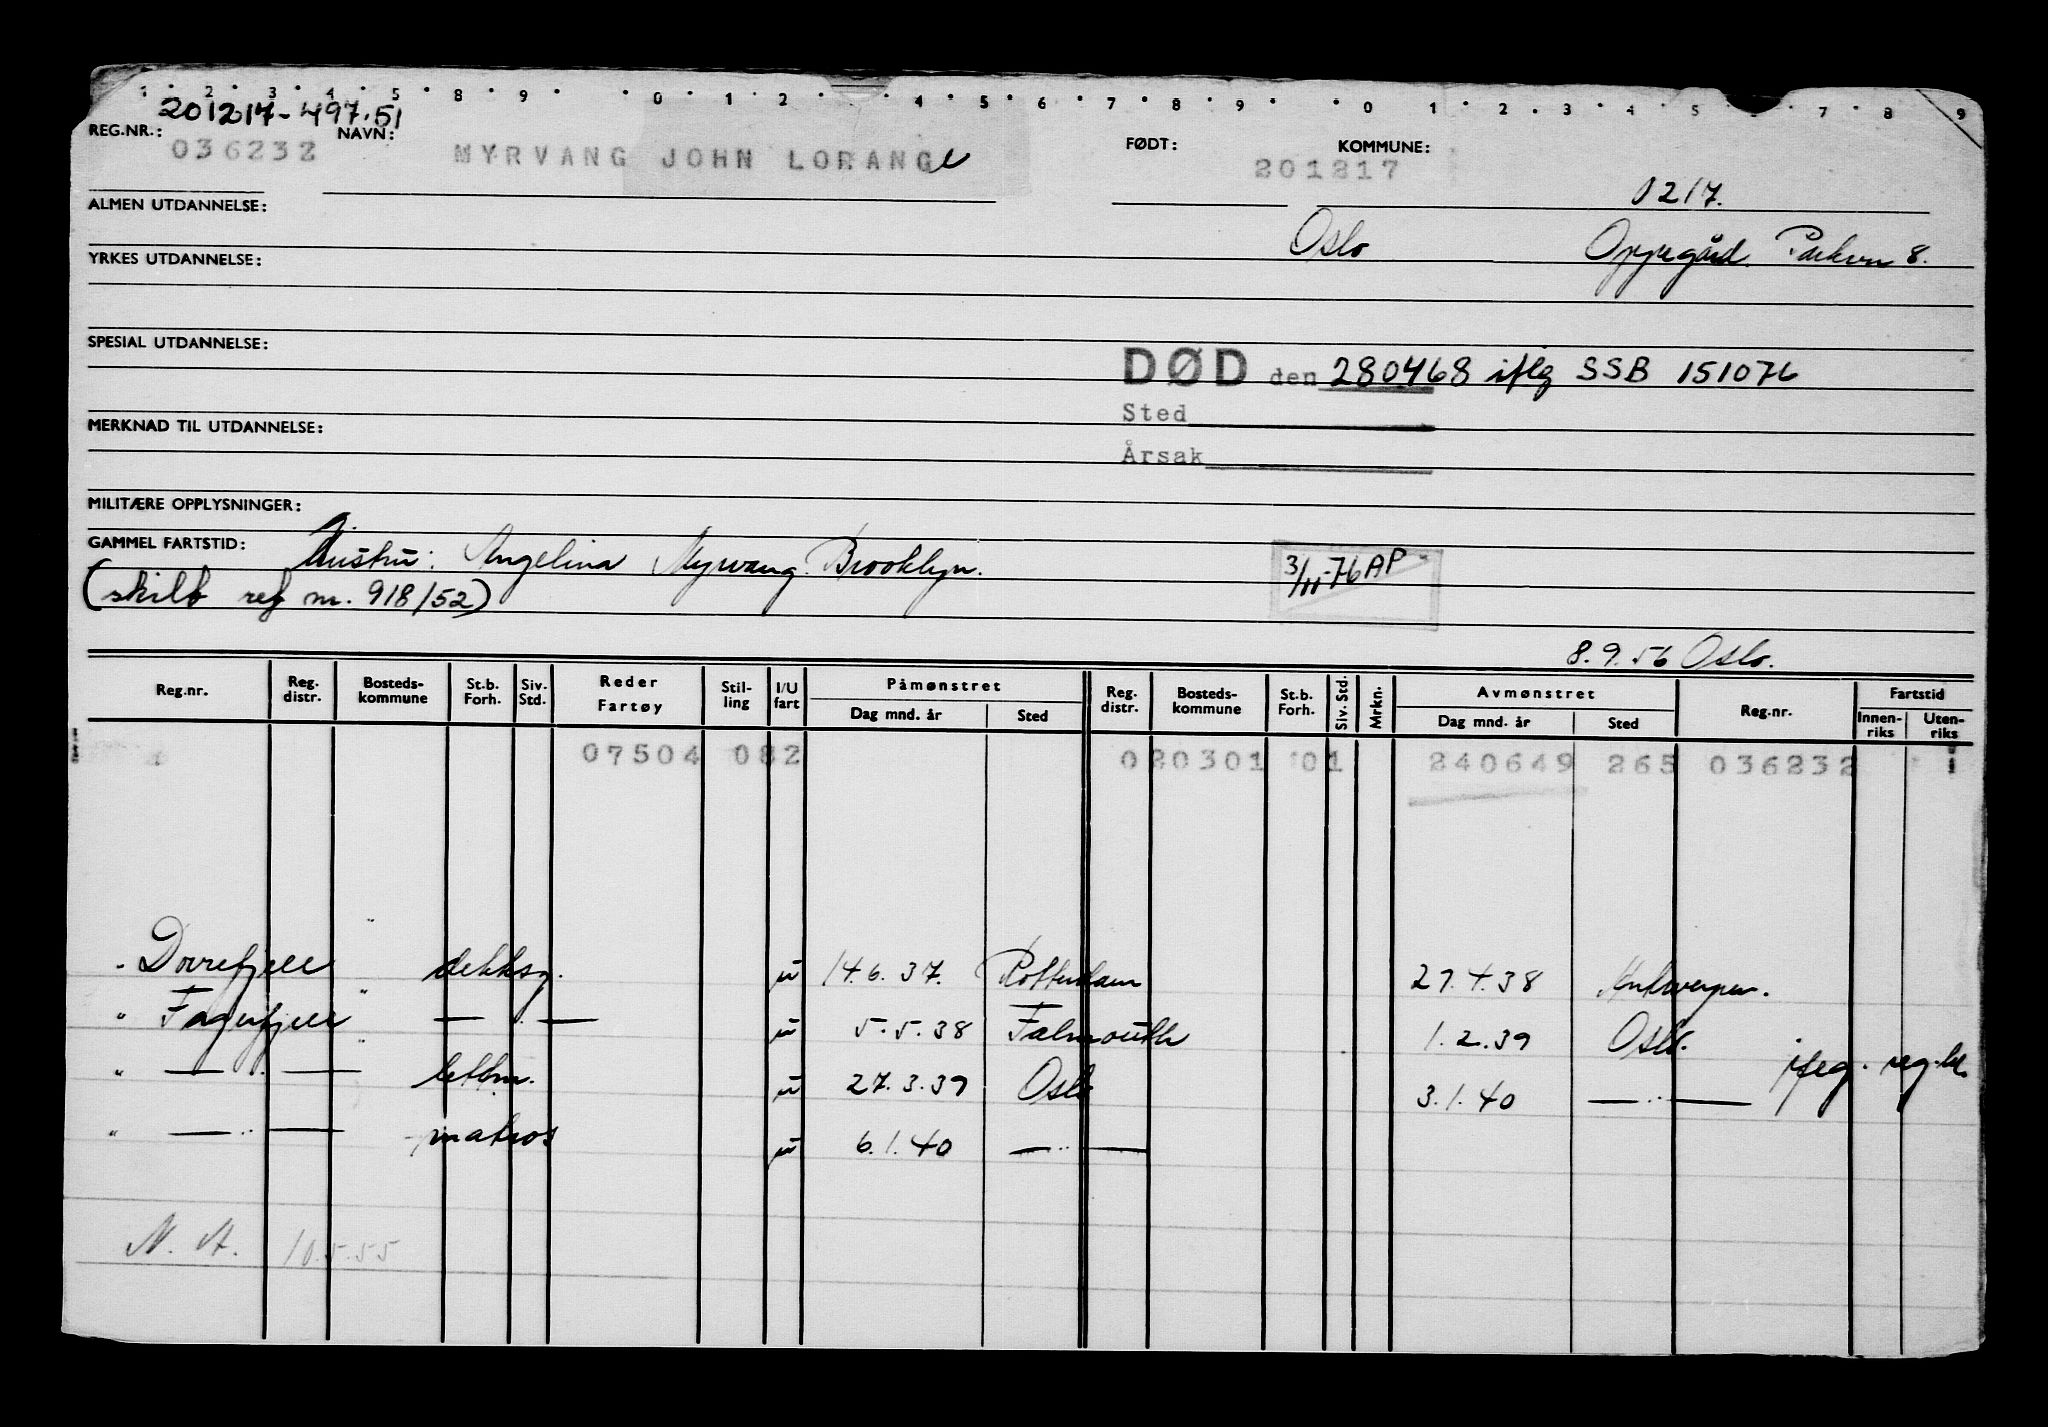 1 2 3 4 5 8 9 0 1 2 4 5 6 7 8 9 0 1 2 3 4 5 7 8 9
201217-497.51
REG.NR.: 036232 NAVN: MYRVANG JOHN LORANGE FØDT: 201217 KOMMUNE: 0217.
ALMEN UTDANNELSE:
Oslo Oppegård Parkvn 8.
YRKES UTDANNELSE:
SPESIAL UTDANNELSE:
DØD den 280468 iflg SSB 151076
Sted
MERKNAD TIL UTDANNELSE:
Årsak
MILITÆRE OPPLYSNINGER:
GAMMEL FARTSTID: Hustru: Angelina Myrvang. Brooklyn.
3/11-76 AP
(skilt ref nr. 918/52)
8.9.56 Oslo.
Reg.nr. Reg. distr. Bosteds-kommune St.b. Forh. Siv. Std. Reder Fartøy Stil-ling I/U fart Påmønstret Dag mnd. år Sted Reg. distr. Bosteds-kommune St.b. Forh. Siv. Std. Mrkn. Avmønstret Dag mnd. år Sted Reg.nr. Fartstid Innen-riks Uten-riks
07504 082 020301 01 240649 265 036232
" Dovrefjell " dekksg. u 14.6.37. Rotterdam 27.4.38 Antwerpen.
" Fagerfjell " — " — u 5.5.38 Falmouth 1.2.39 Oslo.
" — " — " lettm. u 27.3.39 Oslo 3.1.40 — " — ifeg. reg.kl.
" — " — matros u 6.1.40 — " —
N. A. 10.5.55